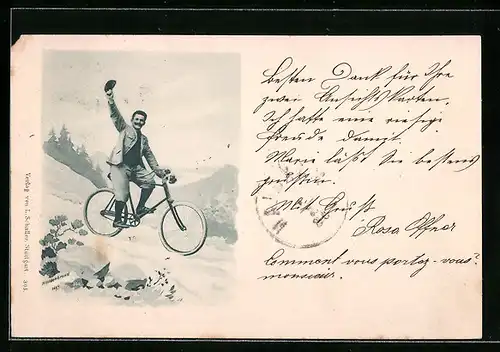 Besten Dank für Ihre
zwei Ansichtskarten.
Ich hatte eine riesige
Freude damit.
Marie läßt Sie bestens
grüssen.
Mit Gruß
Rosa
Comment vous portez-vous?
monsieur.
Verlag von L. Schaller, Stuttgart. 301.